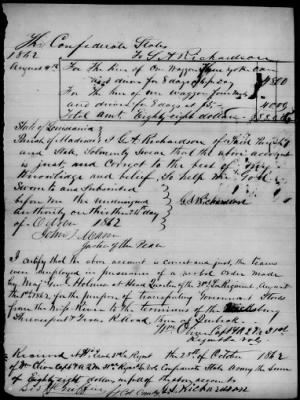 The Confederate States
1862 To G. A. Richardson
August 4th For the hire of One Waggon Three yoke Oxen
and driver for 8 days at 6 pr Day 4800
For the hire of one waggon four
and driver for 8 days at 5 - 4000
Total amt. Eighty eight dollars - 8800
State of Louisiana
Parish of Madison I G. A. Richardson of said Parish
and State, Solemnly Swear that the above account
is just, and correct to the best of my
Knowledge and belief. So help me God
Sworn to and Subscribed
before me the undersigned G. A. Richardson
authority on this the day
of October 1862
John
Justice of the Peace
I certify that the above account is correct and just, the teams
were employed in pursuance of a verbal order made
by Maj Genl Holmes at Head Quarters of the 31st Regiment, August
the 1st 1862, for the purpose of Transporting Government Stores
from the River to the Terminus of the Vicksburg
Shreveport & Texas R. Road, time of
Wm
Capt A Q M 31st
Regiment
Received at Hd Qrs 31st Regmt the 23d of October 1862
of Wm Capt & A Q M 31st Regmt Confederate States Army the Sum
of Eighty eight dollars in full of the above account
G. A. Richardson